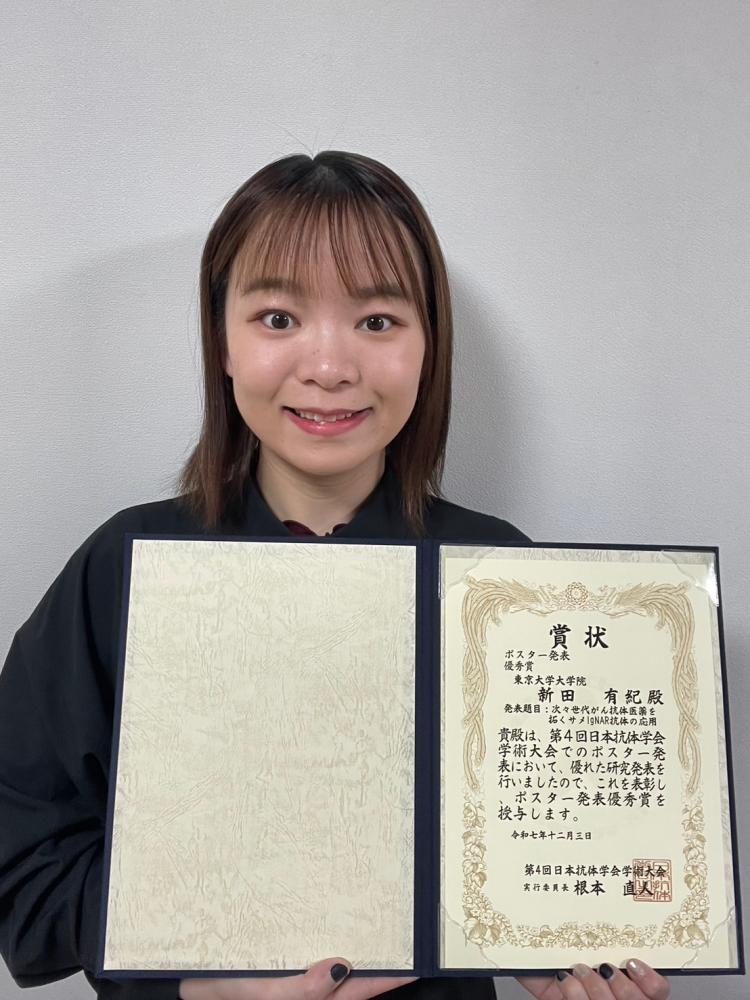 賞状
ポスター発表
優秀賞
東京大学大学院
新田 有紀殿
発表題目：次々世代がん抗体医薬を
拓くサメIgNAR抗体の応用
貴殿は、第4回日本抗体学会
学術大会でのポスター発
表において、優れた研究発表を
行いましたので、これを表彰し
、ポスター発表優秀賞を
授与します。
令和七年十二月三日
第4回日本抗体学会学術大会
実行委員長 根本 直人